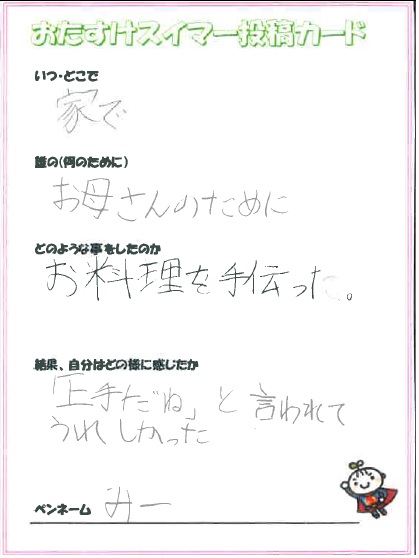 おたすけスイマー投稿カード
いつ・どこで
家で
誰の(何のために)
お母さんのために
どのような事をしたのか
お料理を手伝った。
結果、自分はどの様に感じたか
「上手だね」と言われて
うれしかった
ペンネーム みー